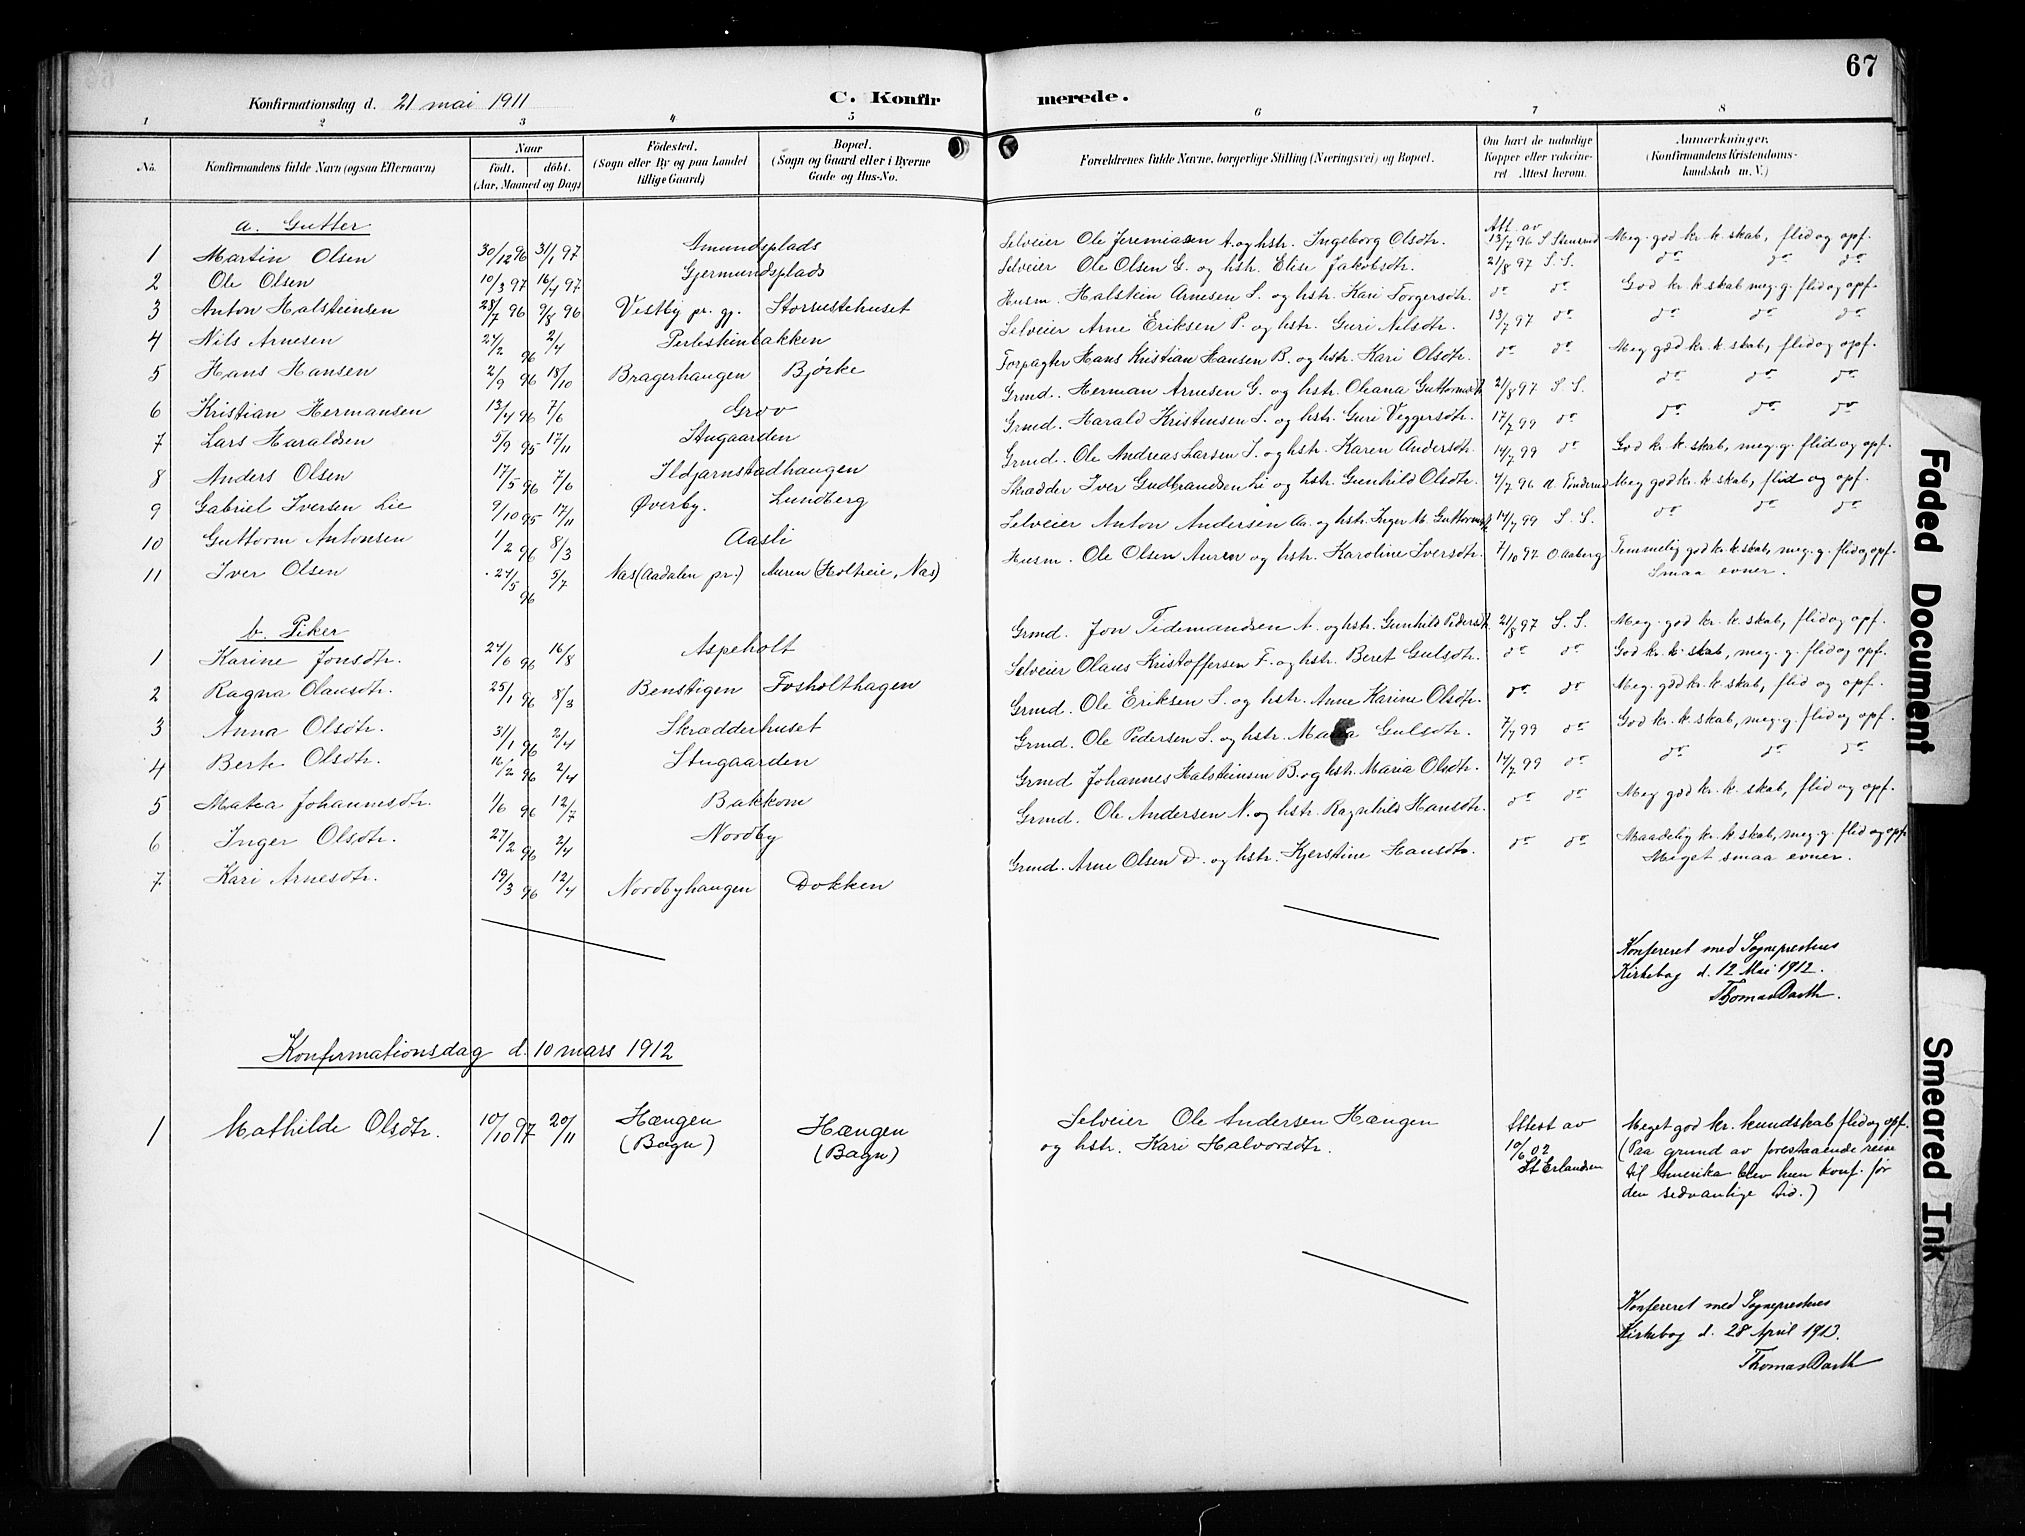 67
Konfirmationsdag d. 21 mai 1911 C. Konfir merede.
1 2 3 4 5 6 7 8
No. Konfirmandens fulde Navn (ogsaa Efternavn) Naar født. døbt. (Aar, Maaned og Dag) Fødested. (Sogn eller By og paa Landet tillige Gaard) Bopæl. (Sogn og Gaard eller i Byerne Gade og Hus-No. Forældrenes fulde Navne, borgerlige Stilling (Næringsvei) og Bopæl. Om havt de naturlige Kopper eller vakcineret Attest herom. Anmærkninger. (Konfirmandens Kristendomskundskab m. V.)
a. Gutter
1 Martin Olsen 30/12 96 31/1 97 Amundsplads Selveier Ole Jeremiasen A. og hstr. Ingeborg Olsdtr. Att. av 13/7 96 S. Stensrud Meg. god kr. k. skab, flid og opf.
2 Ole Olsen 10/3 97 16/4 97 Gjermundsplads Selveier Ole Olsen G. og hstr. Elise Jakobsdtr. 21/8 97 S. S. do do do
3 Anton Halsteinsen 28/7 96 9/8 96 Vestby pr. gj. Storrustehuset Husm. Halstein Arnesen S. og hstr. Kari Torgersdtr. do do God kr. k. skab meg. g. flid og opf.
4 Nils Arnesen 24/2 96 2/4 Perlesteinbakken Selveier Arne Eriksen P. og hstr. Guri Nilsdtr. 13/7 97 do do do do
5 Hans Hansen 2/9 96 18/10 Bragerhaugen Bjørke Forpagter Hans Kristian Hansen B. og hstr. Kari Olsdtr. do do Meg god kr. k. skab, flid og opf.
6 Kristian Hermansen 13/4 96 7/6 Grøv Grmd. Herman Arnesen G. og hstr. Oliana Guttormsdt. 21/8 97 S. S. do do do
7 Lars Haraldsen 5/9 95 17/11 Stugaarden Grmd. Harald Kristensen S. og hstr. Guri Veggersdtr. 17/7 99 do do do do
8 Anders Olsen 17/5 96 7/6 Ildjarnstadhaugen Grmd. Ole Andreas Larsen I. og hstr. Karen Andersdtr. 14/7 99 do God kr. k. skab, meg. g. flid og opf.
9 Gabriel Iversen Lie 9/10 95 17/11 Øverby. Lundberg Skrædder Iver Gudbrandsen Li og hstr. Gunhild Olsdtr. 4/7 96 N. Tonderud Meg god kr. k. skab, flid og opf.
10 Guttorm Antonsen 1/2 96 8/3 Aasli Selveier Anton Andersen Aa. og hstr. Inger M. Guttormsdt 14/7 99 S. S. do do do
11 Iver Olsen 24/5 96 5/7 Nas (Aadalen pr.) Auren (Holteie, Nas) Husm. Ole Olsen Auren og hstr. Karoline Iversdtr. 7/10 97 O Aaberg Temmelig god kr. k. skab, meg. g. flid og opf.
Smaa evner.
b. Piker
1 Karine Jonsdtr. 24/6 96 16/8 Aspeholt Grmd. Jon Tidemandsen A. og hstr. Gunhild Pedersdt. 21/8 97 S. S. Meg. god kr. k. skab, flid og opf.
2 Ragna Olausdtr. 25/1 96 8/3 Benstigen Fosholthagen Selveier Olaus Kristoffersen F. og hstr. Beret Gulsdtr. do do God kr. k. skab, meg. g. flid og opf.
3 Anna Olsdtr. 31/1 96 2/4 Skrædderhuset Grmd. Ole Eriksen S. og hstr. Anne Karine Olsdtr. do do Meg. god kr. k. skab, flid og opf.
4 Berte Olsdtr. 16/2 96 2/4 Stugaarden Grmd. Ole Pedersen S. og hstr. Gulsdtr. 7/7 99 do God kr. k. skab, meg. g. flid og opf.
5 Matea Johannesdtr. 1/6 96 12/7 Bakkom Grmd Johannes Halsteinsen B. og hstr. Maria Olsdtr. 14/7 99 do do do do
6 Inger Olsdtr. 27/2 96 2/4 Nordby Grmd. Ole Andersen N. og hstr. Ragnhild Hansdtr. do do Meg god kr. k. skab, flid og opf.
7 Kari Arnesdtr. 19/3 96 12/4 Nordbyhaugen Dokken Grmd. Arne Olsen D. og hstr. Kjerstine Hansdtr. do do Maadelig kr. k. skab, meg. g. flid og opf
Meget smaa evner.
Konfereret med Sogneprestens
Kirkebog d. 12 Mai 1912.
Thomas Barth.
Konfirmationsdag d. 10 mars 1912
1 Mathilde Olsdtr. 10/10 97 20/11 Hængen (Bagn) Hængen (Bagn) Selveier Ole Andersen Hængen
og hstr. Kari Halvorsdtr.
Attest av
10/6 02
St Erlandsen
Meget god kr. kundskab flid og opf.
(Paa grund av forestaaende reise
til Amerika blev hun konf. før
den sedvanlige tid.)
Konfereret med Sogneprestens
Kirkebog d. 28 April 1913.
Thomas Barth
Faded Document
Smeared Ink